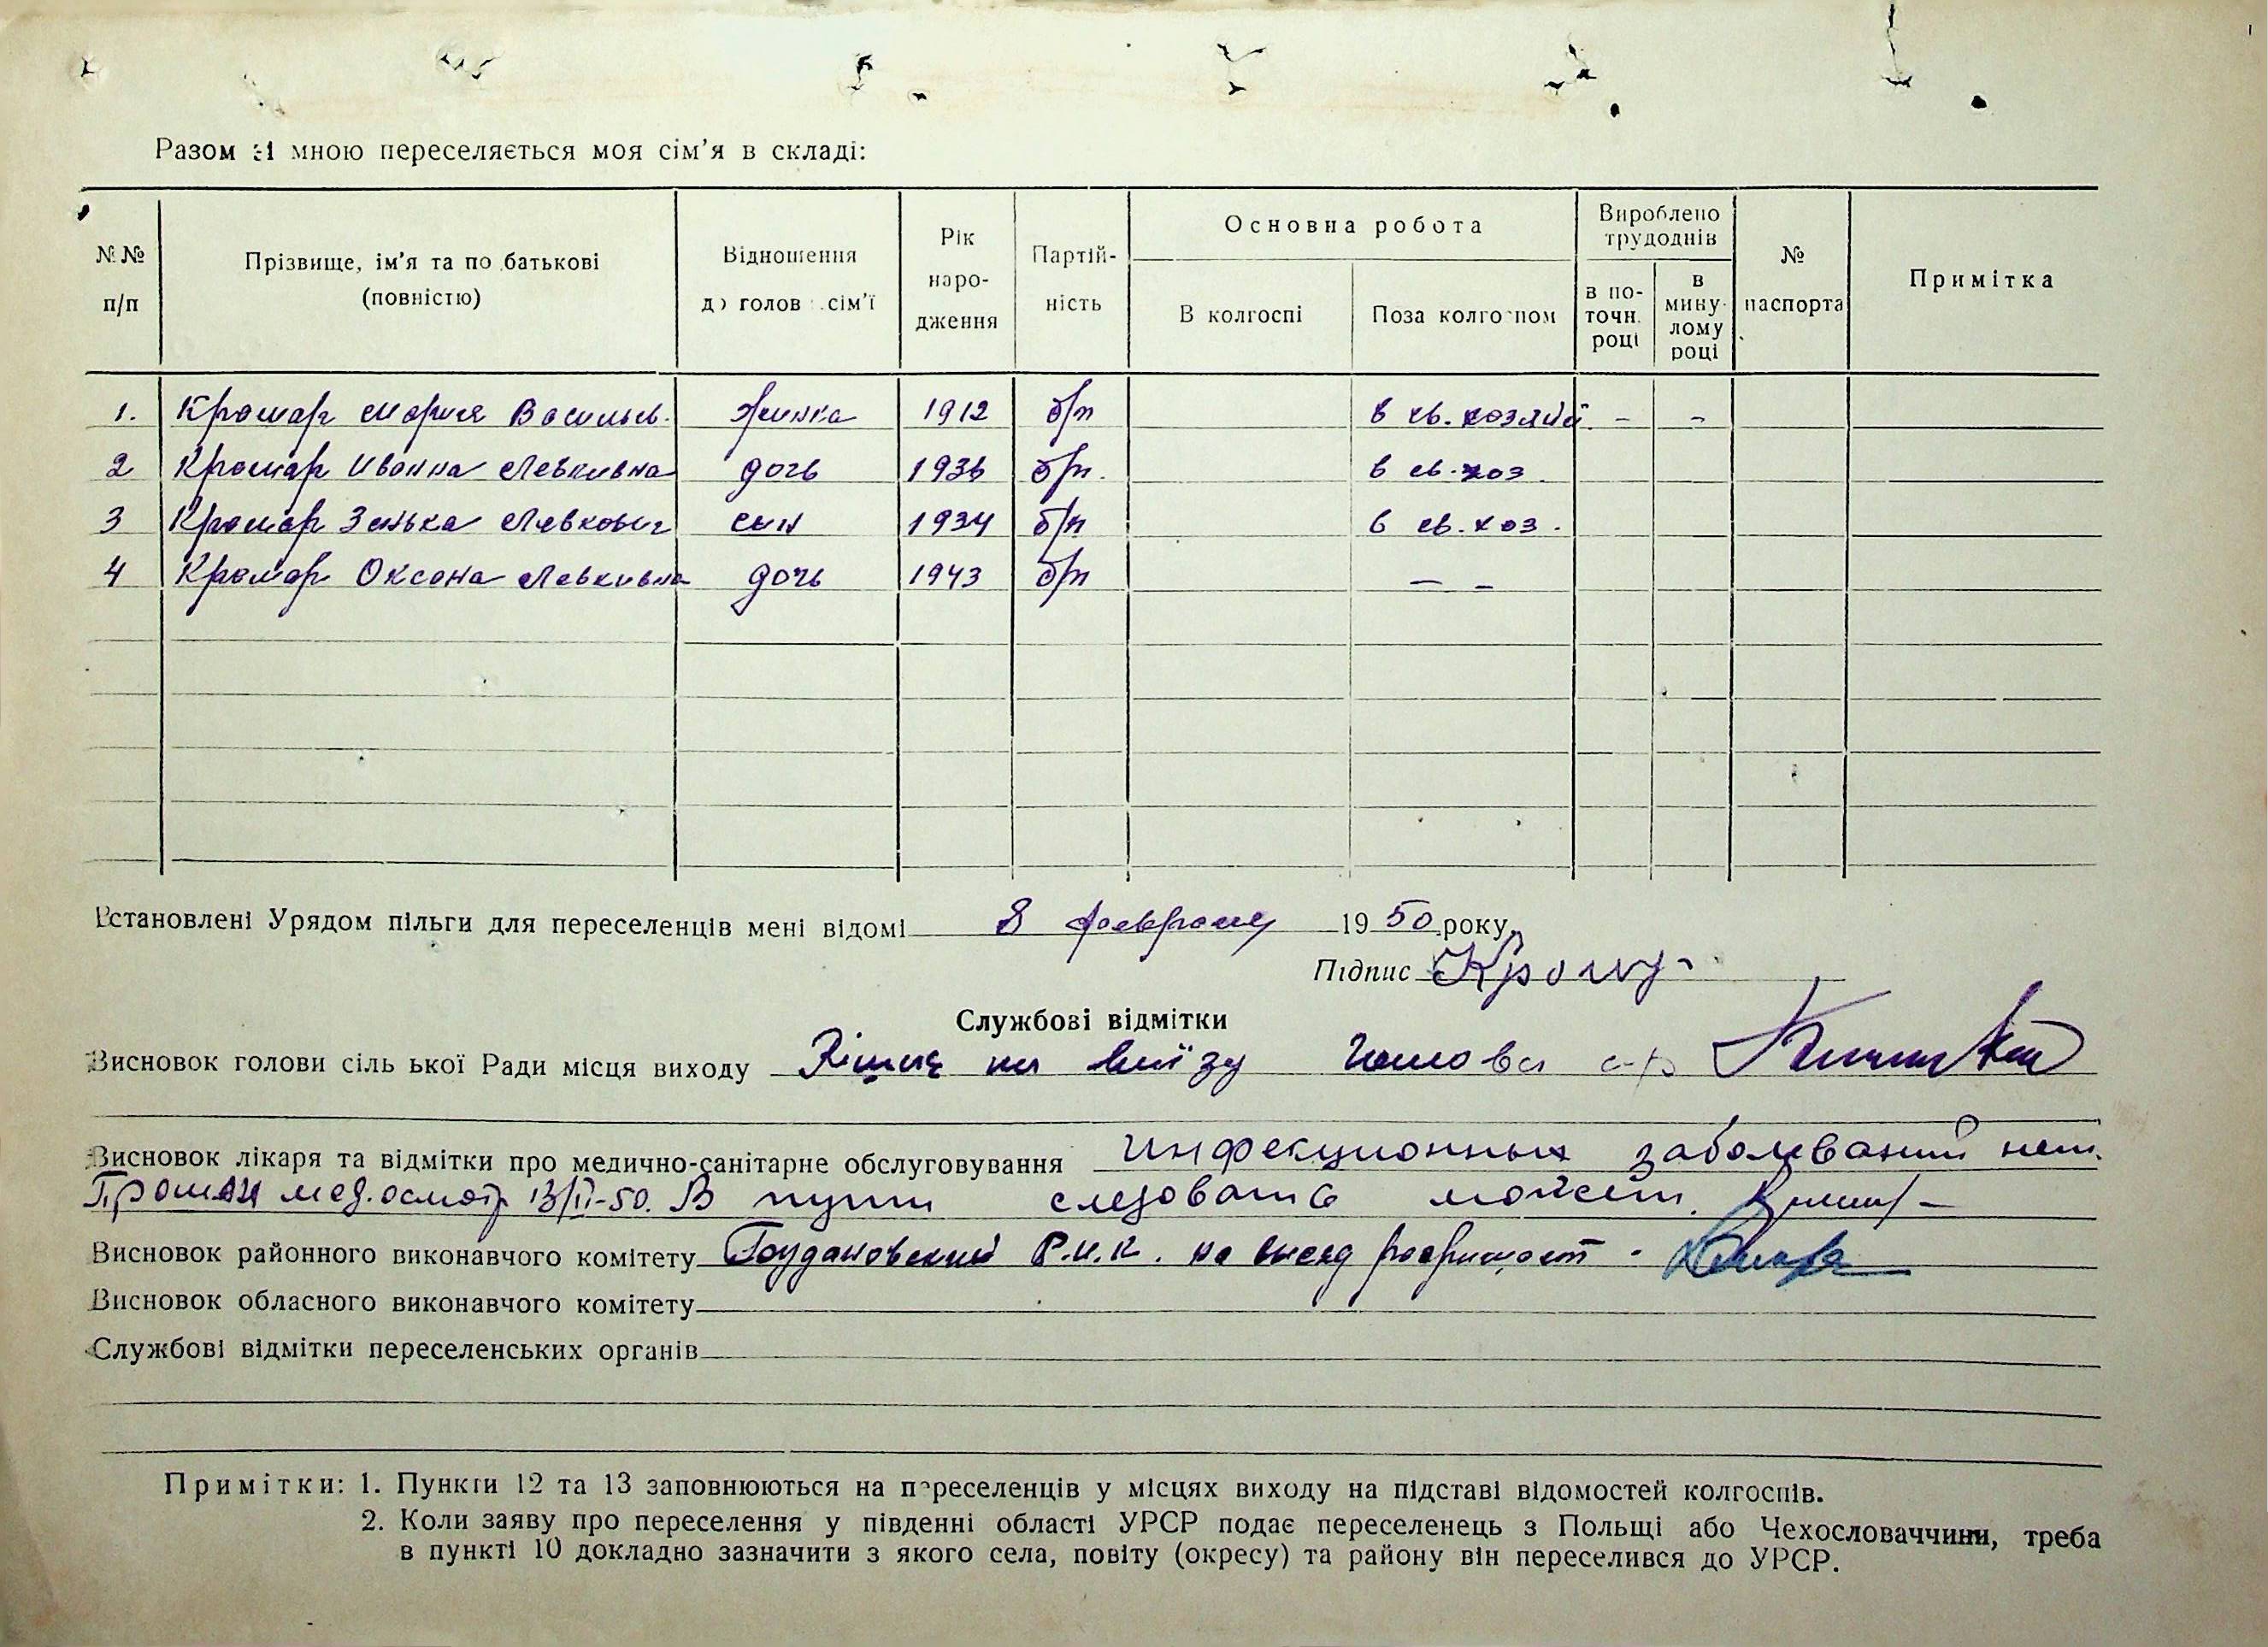 Разом зі мною переселяється моя сім'я в складі:
№№ п/п | Прізвище, ім'я та по батькові (повністю) | Відношення до голови сім'ї | Рік народження | Партійність | Основна робота | Вироблено трудоднів | № паспорта | Примітка
В колгоспі | Поза колгоспом | в поточн. році | в минулому році
1. Крамар Мария Васильв. жинка 1912 б/п в св. хозяйс. - -
2 Крамар Иванна Левкивна дочь 1936 б/п. в св. хоз.
3 Крамар Зенька Левкович сын 1934 б/п в св. хоз.
4 Крамар Оксана Левкивна дочь 1943 б/п — –
Встановлені Урядом пільги для переселенців мені відомі 8 февраля 1950 року.
Підпис Крамар
Службові відмітки
Висновок голови сільської Ради місця виходу на виїзд Голова с/р
Висновок лікаря та відмітки про медично-санітарне обслуговування Инфекционных заболеваний нет.
Прошли мед. осмотр 13/II-50. В пути следовать может.
Висновок районного виконавчого комітету Р.И.К. на выезд
Висновок обласного виконавчого комітету
Службові відмітки переселенських органів
Примітки: 1. Пункти 12 та 13 заповнюються на переселенців у місцях виходу на підставі відомостей колгоспів.
2. Коли заяву про переселення у південні області УРСР подає переселенець з Польщі або Чехословаччини, треба
в пункті 10 докладно зазначити з якого села, повіту (окресу) та району він переселився до УРСР.